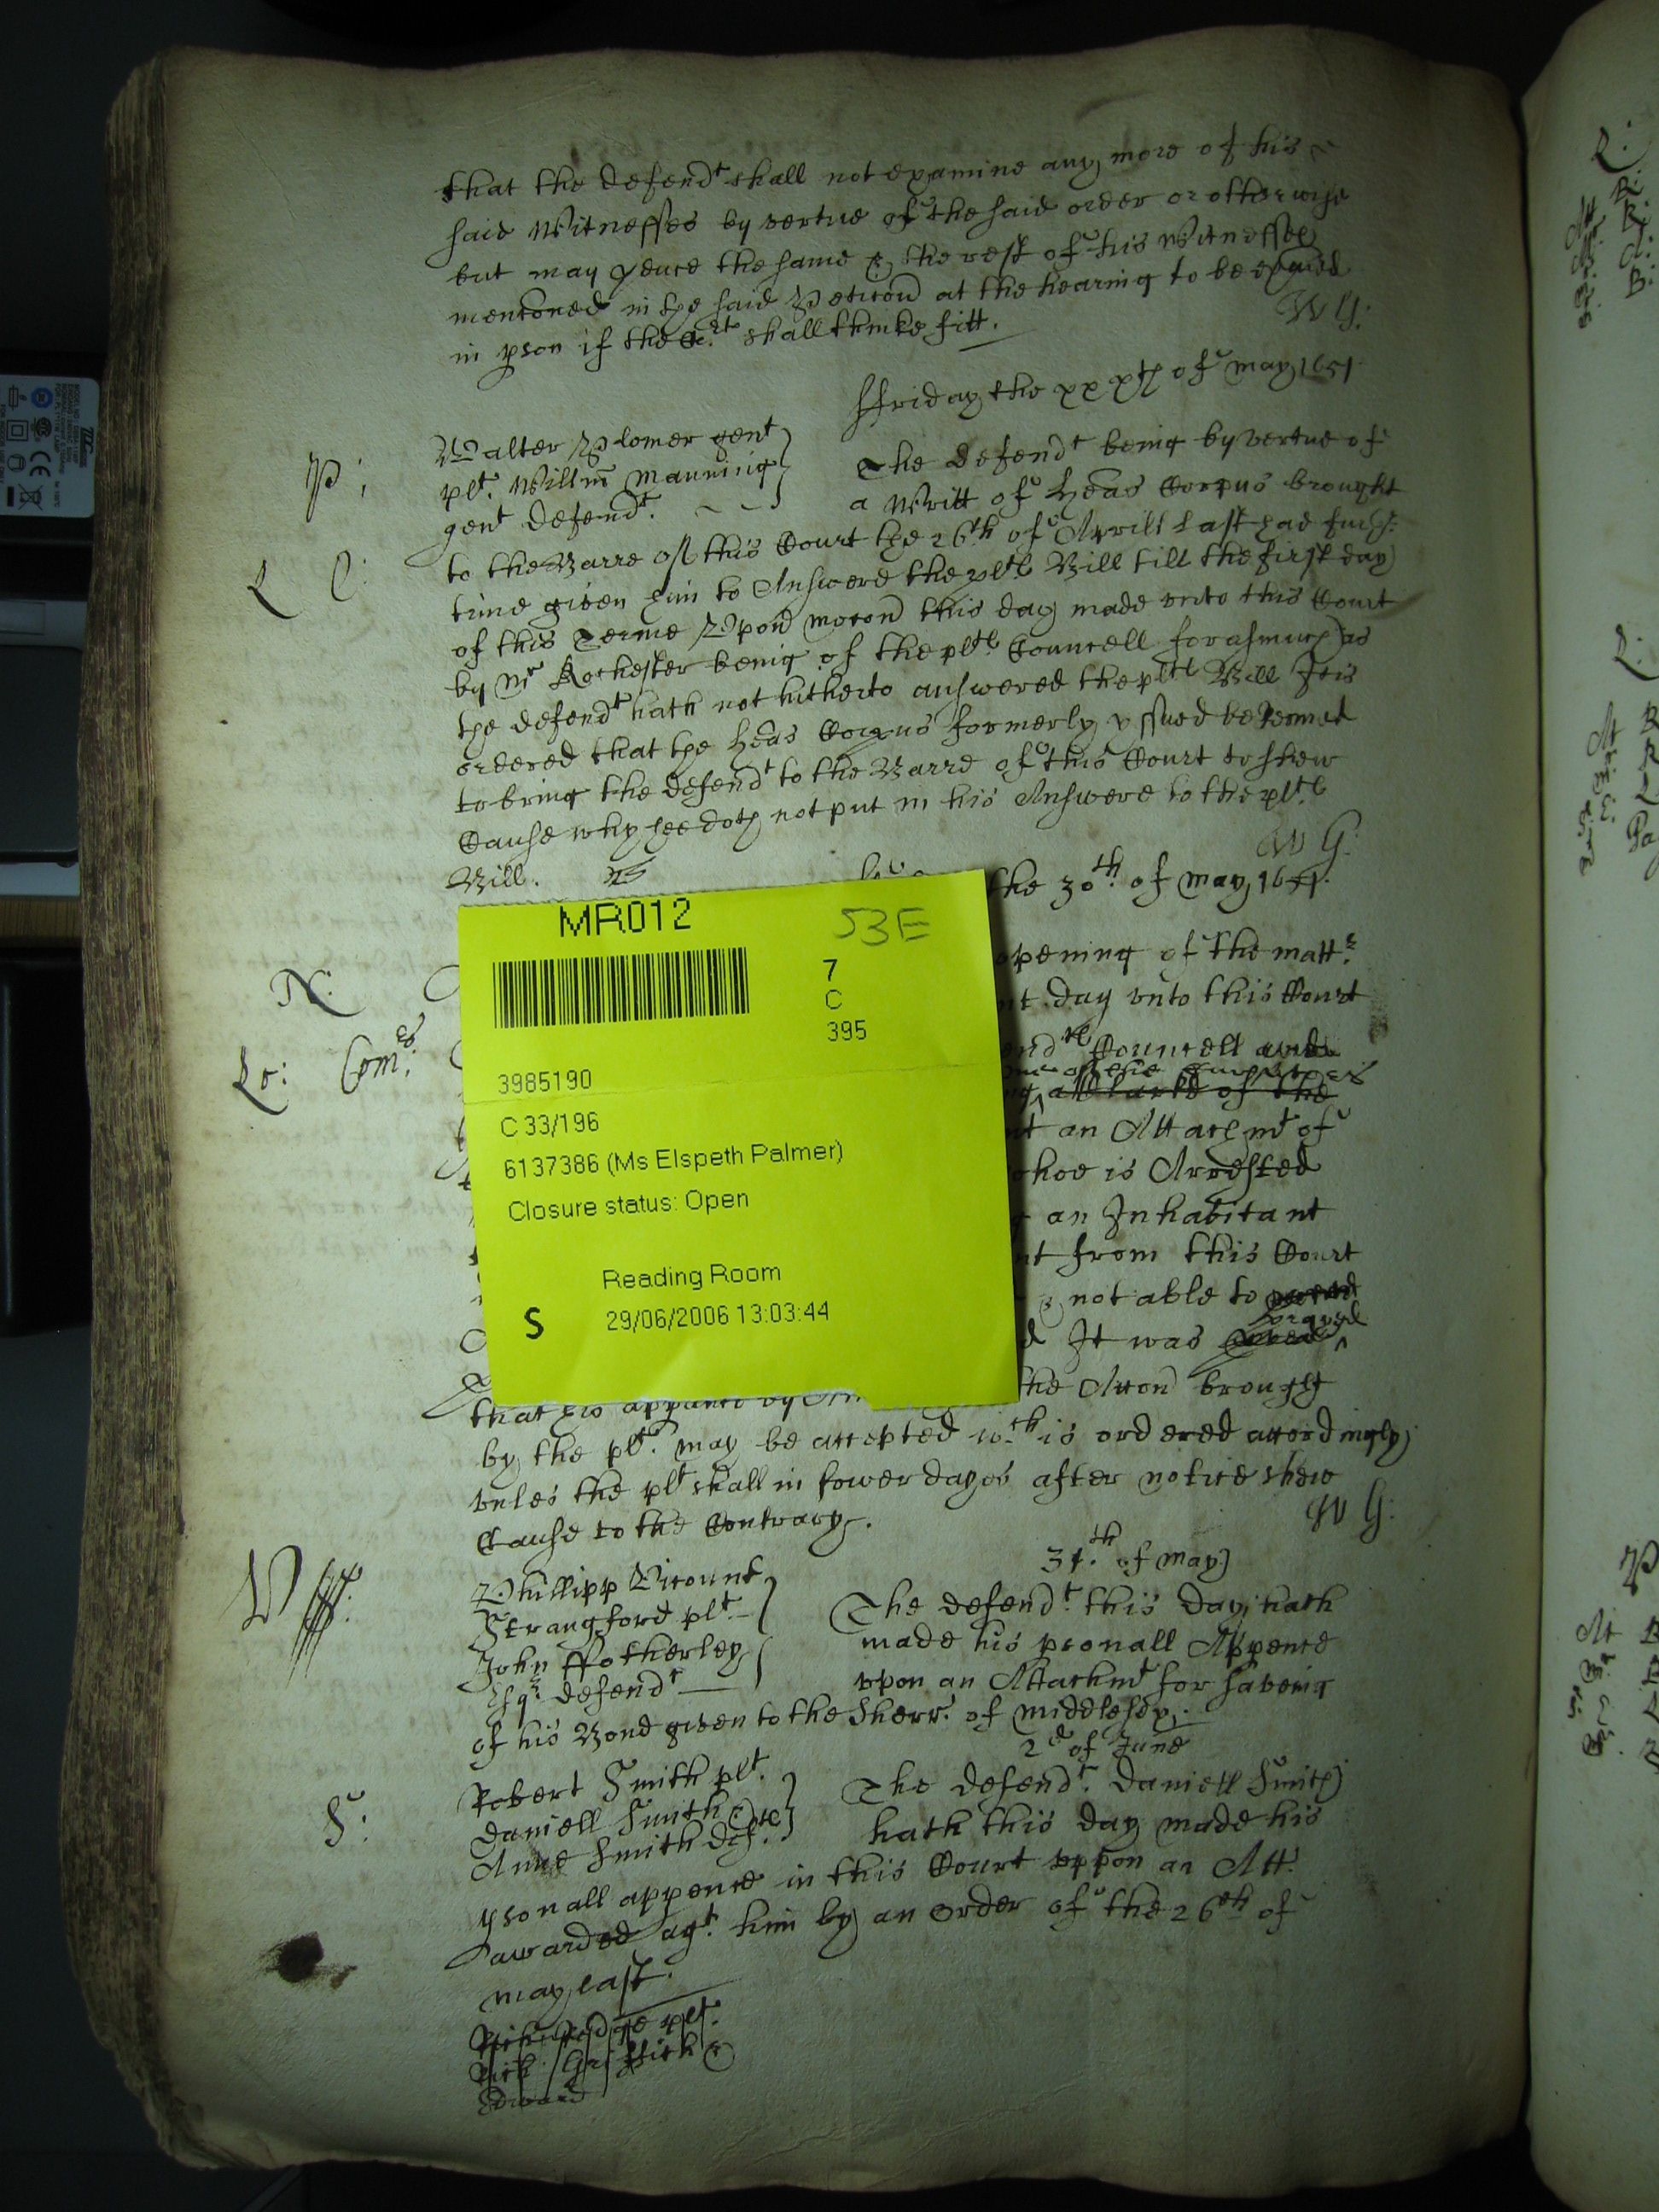 that the defendt shall not examine any more of his
said Witnesses by vertue of the said order or otherwise
but may pduce the same & the rest of his Witnesses
mentoned in the said Peticon at the hearing to be exaied
in pson if the Cort shall thinke fitt.
W G:
ffriday the xxxth of may 1651
P:
Walter Plomer gent
plt. Willm Manning
gent defendt.
The defendt being by vertue of
a Writt of Heas Corpus brought
L C:
to the Barre of this Court the 26th of Aprill last had
time given him to Answere the plts Bill till the first day
of this Terme Upon mocon this day made unto this Court
by Mr Rochester being of the plts Councell forasmuch as
the defendt hath not hitherto answered the plts Bill It is
ordered that the Heas Corpus formerly yssued be
to bring the defendt to the Barre of this Court to shew
Cause why hee doth not put in his Answere to the plts
Bill.
W G:
the 30th of may 1651.
N:
opening of the mattr
day unto this Court
Councell and
Lo: Com:es
all parte of the
an Attachmt of
is Arrested
an Inhabitant
from this Court
& not able to
prayed
It was
that his appance by
the Accon brought
by the plt. may be accepted wch is ordered accordingly
unles the plt shall in fower dayes after notice shew
Cause to the Contrary.
W G:
31th of may
Phillipp Vicount
Strangford plt
John ffotherley
Esqr defendt
The defendt. this day hath
made his psonall Appence
upon an Attachmt for saveing
of his Bond given to the Sherr. of Middlesex.
2d of June
S:
Robert Smith plt.
Daniell Smith &
Anne Smith defts.
The defendt. Daniell Smith
hath this day made his
psonall appence in this Court uppon an Att.
awarded agt. him by an order of the 26th of
may last.
Edward
MR012
53E
7
C
395
3985190
C 33/196
6137386 (Ms Elspeth Palmer)
Closure status: Open
Reading Room
S
29/06/2006 13:03:44